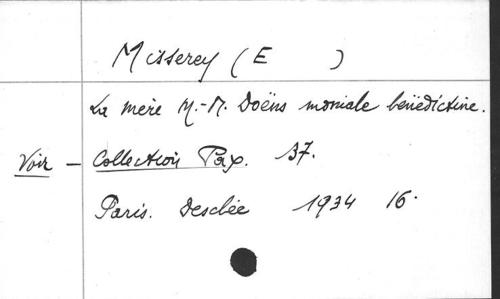 Misserey (E )
La mère M.-M. Doëns moniale bénédictine.
Voir - Collection Pax. 37.
Paris. Desclée 1934 16°